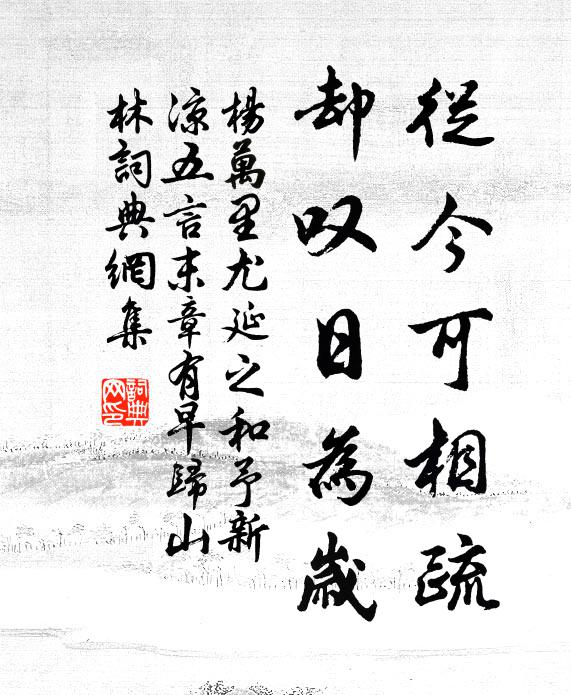 從今可相疏
却叹日為歲
楊萬里尤延之和予新
涼五言末章有早歸山
林詞典網集
詞典
网印